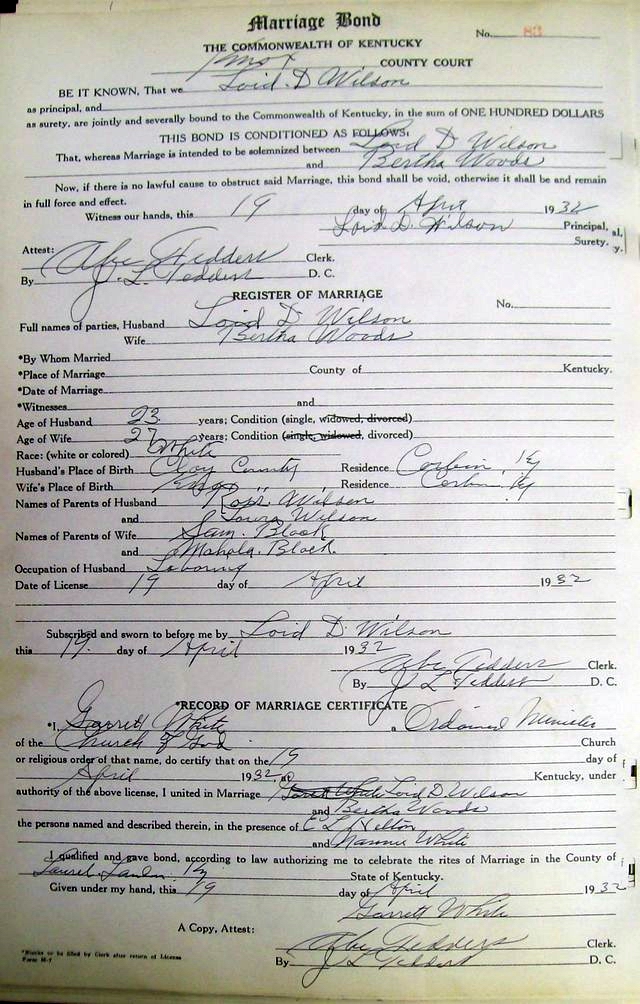 Marriage Bond
No. 83
THE COMMONWEALTH OF KENTUCKY
Knox COUNTY COURT
BE IT KNOWN, That we Loid D Wilson
as principal, and
as surety, are jointly and severally bound to the Commonwealth of Kentucky, in the sum of ONE HUNDRED DOLLARS
THIS BOND IS CONDITIONED AS FOLLOWS:
That, whereas Marriage is intended to be solemnized between Loid D Wilson
and Bertha Woods
Now, if there is no lawful cause to obstruct said Marriage, this bond shall be void, otherwise it shall be and remain
in full force and effect.
Witness our hands, this 19 day of April 1932
Loid D. Wilson Principal,
Surety.
Attest:
Abe Tedders Clerk.
By J. L. Tedders D. C.
REGISTER OF MARRIAGE
No.
Full names of parties, Husband Loid D Wilson
Wife Bertha Woods
*By Whom Married
*Place of Marriage County of Kentucky.
*Date of Marriage
*Witnesses and
Age of Husband 23 years; Condition (single, widowed, divorced)
Age of Wife 27 years; Condition (single, widowed, divorced)
Race: (white or colored) White
Husband's Place of Birth Clay County Residence Corbin, Ky
Wife's Place of Birth Knox " Residence Corbin, Ky
Names of Parents of Husband Ross Wilson
and Laura Wilson
Names of Parents of Wife Sam. Black
and Mahala. Black.
Occupation of Husband Laboring
Date of License 19 day of April 1932
Subscribed and sworn to before me by Loid D. Wilson
this 19. day of April 1932
Abe Tedders Clerk.
By J L Tedders D. C.
*RECORD OF MARRIAGE CERTIFICATE
*I, Garrett White a Ordained Minister
of the Church of God Church
or religious order of that name, do certify that on the 19 day of
April 1932, at Kentucky, under
authority of the above license, I united in Marriage Garrett White Loid D. Wilson
and Bertha Woods
the persons named and described therein, in the presence of E L Helton
and White
I qualified and gave bond, according to law authorizing me to celebrate the rites of Marriage in the County of
Laurel London Ky State of Kentucky.
Given under my hand, this 19 day of April 1932
Garrett White
A Copy, Attest:
Abe Tedders Clerk.
By J L Tedders D. C.
*Blanks to be filled by Clerk after return of License
Form M-7